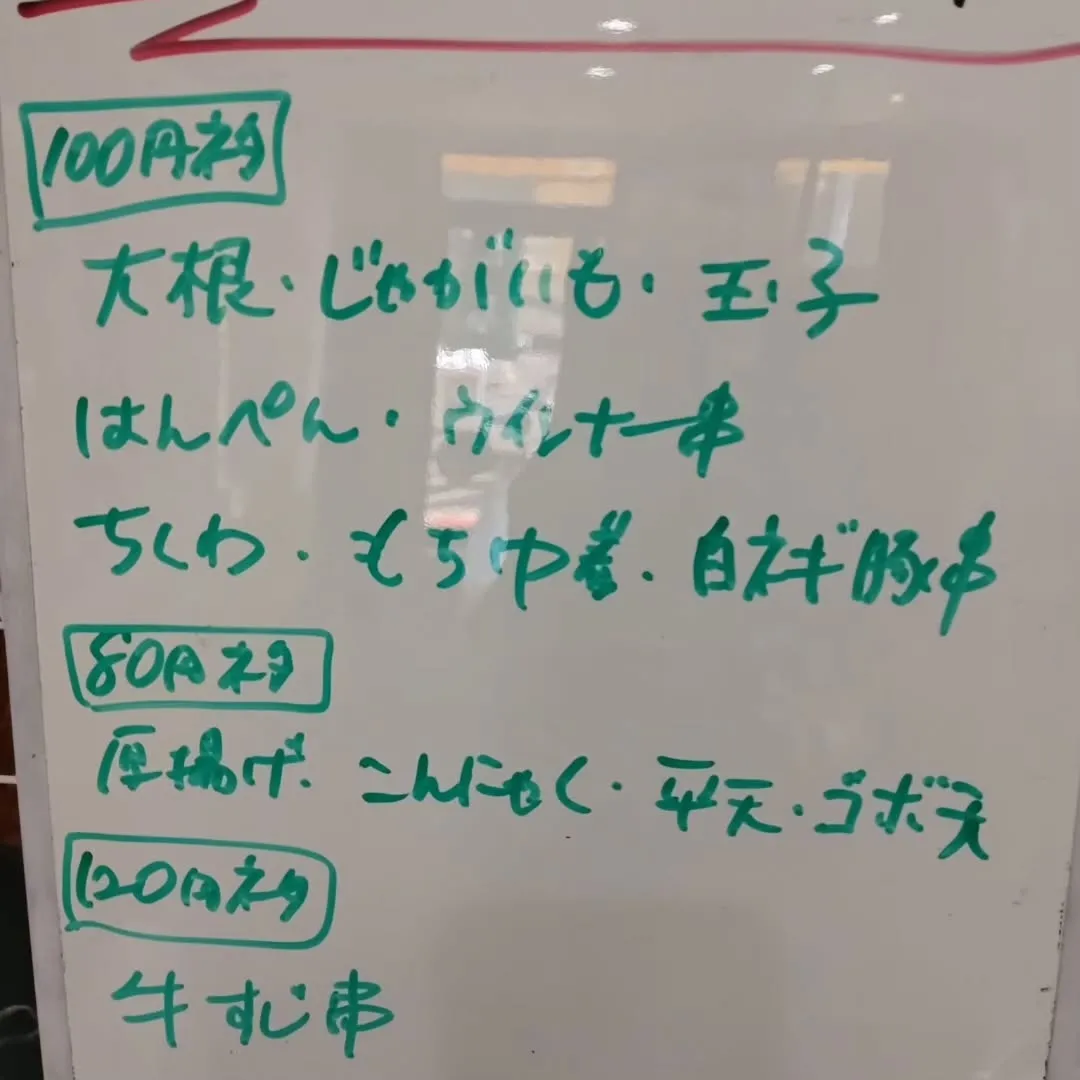 100円ネタ
大根・じゃがいも・玉子
はんぺん・ウインナー串
ちくわ・もち巾着・白ネギ豚串
80円ネタ
厚揚げ・こんにゃく・平天・ゴボ天
120円ネタ
牛すじ串